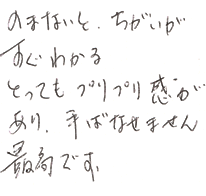 のまないと、ちがいが
すぐわかる
とってもプリプリ感が
あり、手ばなせません
最高です。